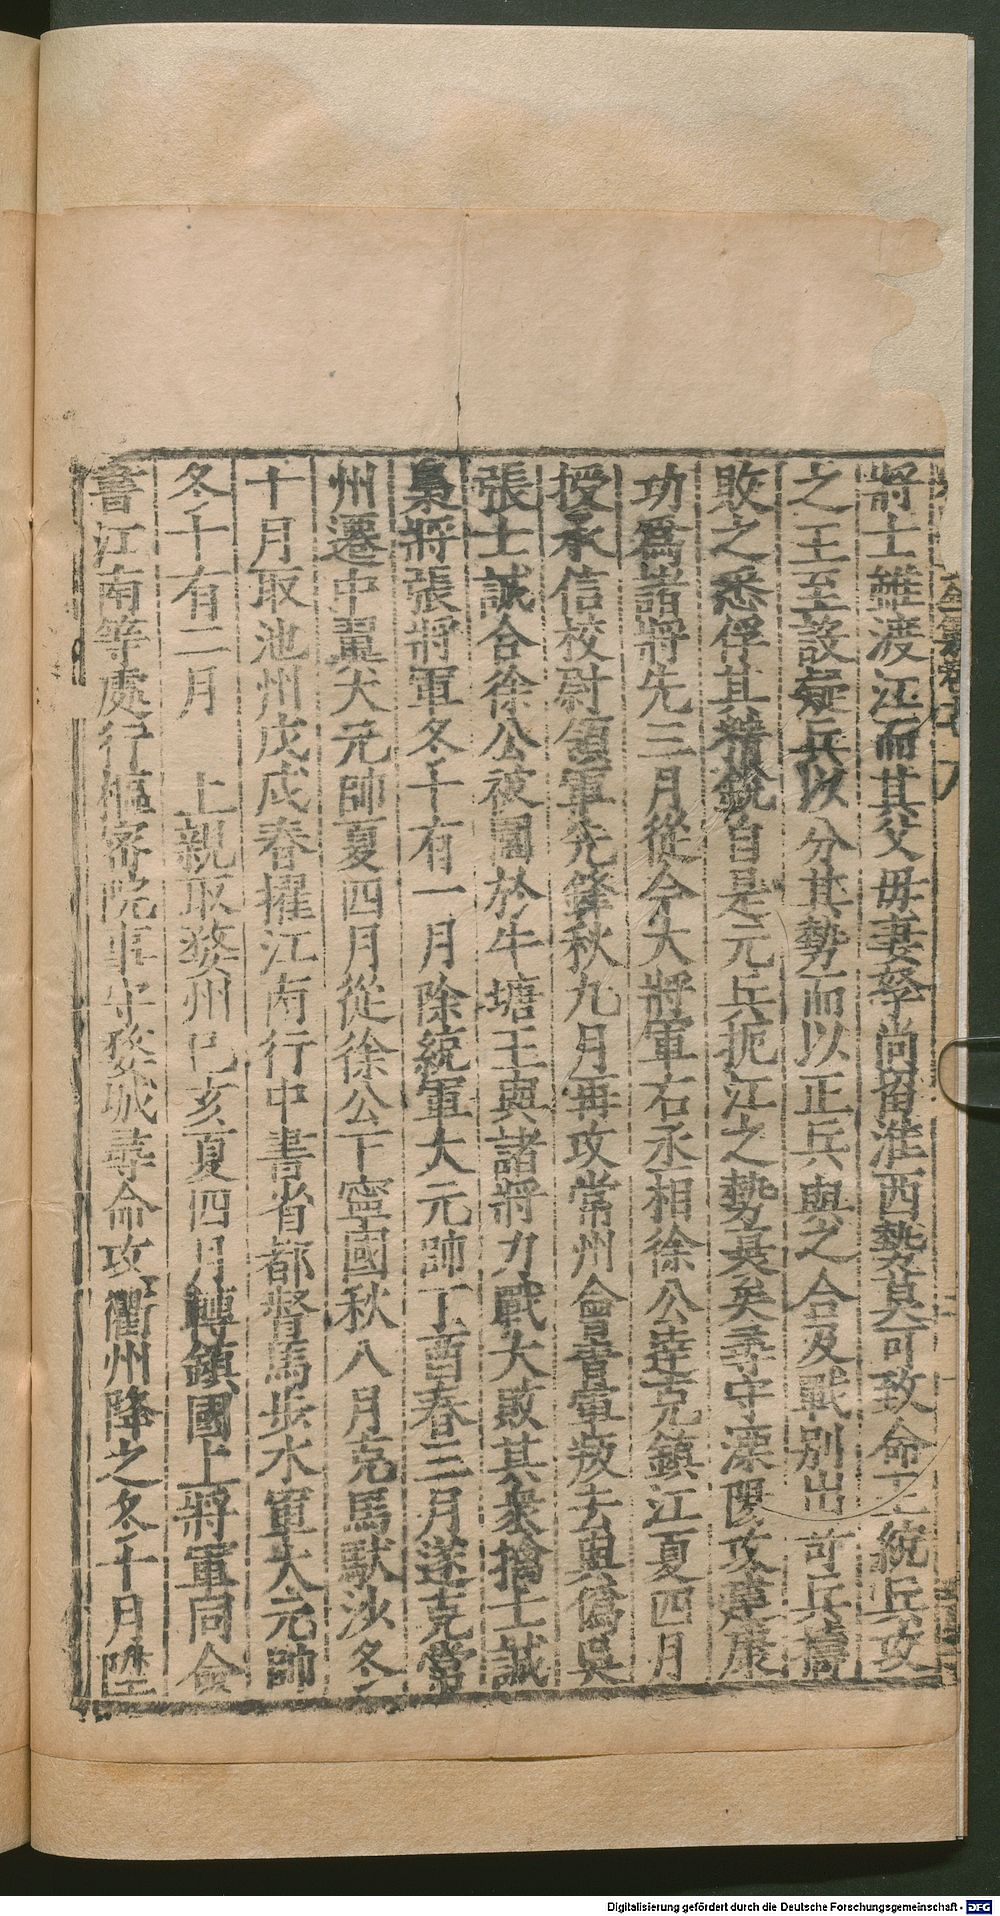 將士雖渡江而其父母妻孥尚留淮西勢莫可致命王統兵攻
之王至設疑兵以分其勢而以正兵與之合及戰別出竒兵擣
敗之悉俘其精銳自是元兵扼江之勢衰矣尋守溧陽攻建康
功爲諸將先三月從今大將軍右丞相徐公達克鎮江夏四月
授承信校尉領軍先鋒秋九月再攻常州會青軍叛去與僞吳
張士誠合徐公被圍於牛塘王與諸將力戰大敗其衆擒士誠
梟將張將軍冬十有一月除統軍大元帥丁酉春三月遂克常
州遷中翼大元帥夏四月從徐公下寧國秋八月克馬馱沙冬
十月取池州戊戌春擢江南行中書省都督馬步水軍大元帥
冬十有二月　上親取婺州己亥夏四月轉鎮國上將軍同僉
書江南等處行樞密院事守婺城尋命攻衢州降之冬十月陞
Digitalisierung gefördert durch die Deutsche Forschungsgemeinschaft - DFG